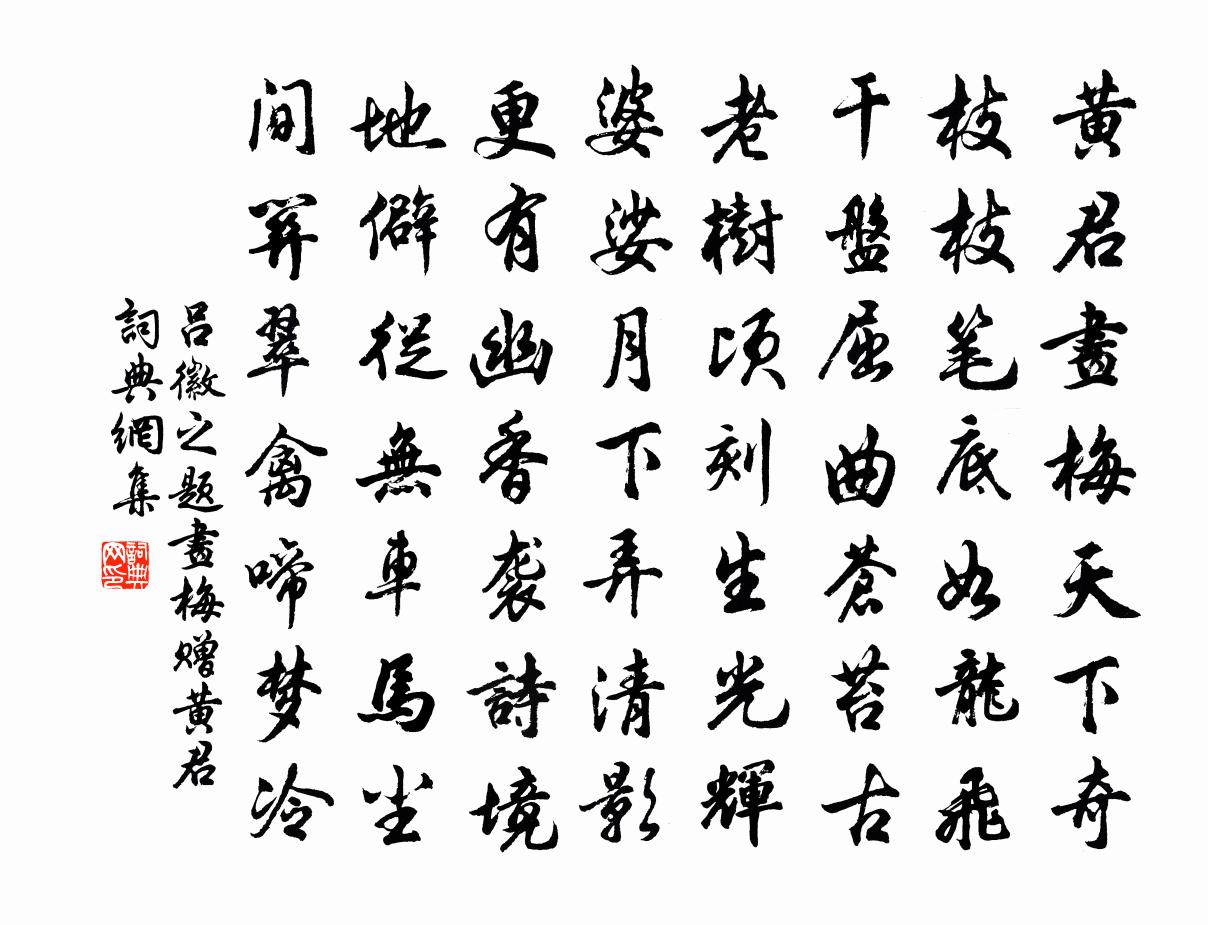 黃君畫梅天下奇
枝枝笔底如龍飛
干盤屈曲蒼苔古
老樹頃刻生光輝
婆娑月下弄清影
更有幽香袭詩境
地僻從無車馬尘
间箅翠禽啼梦冷
吕徽之题畫梅赠黄君
詞典網集
詞典网印